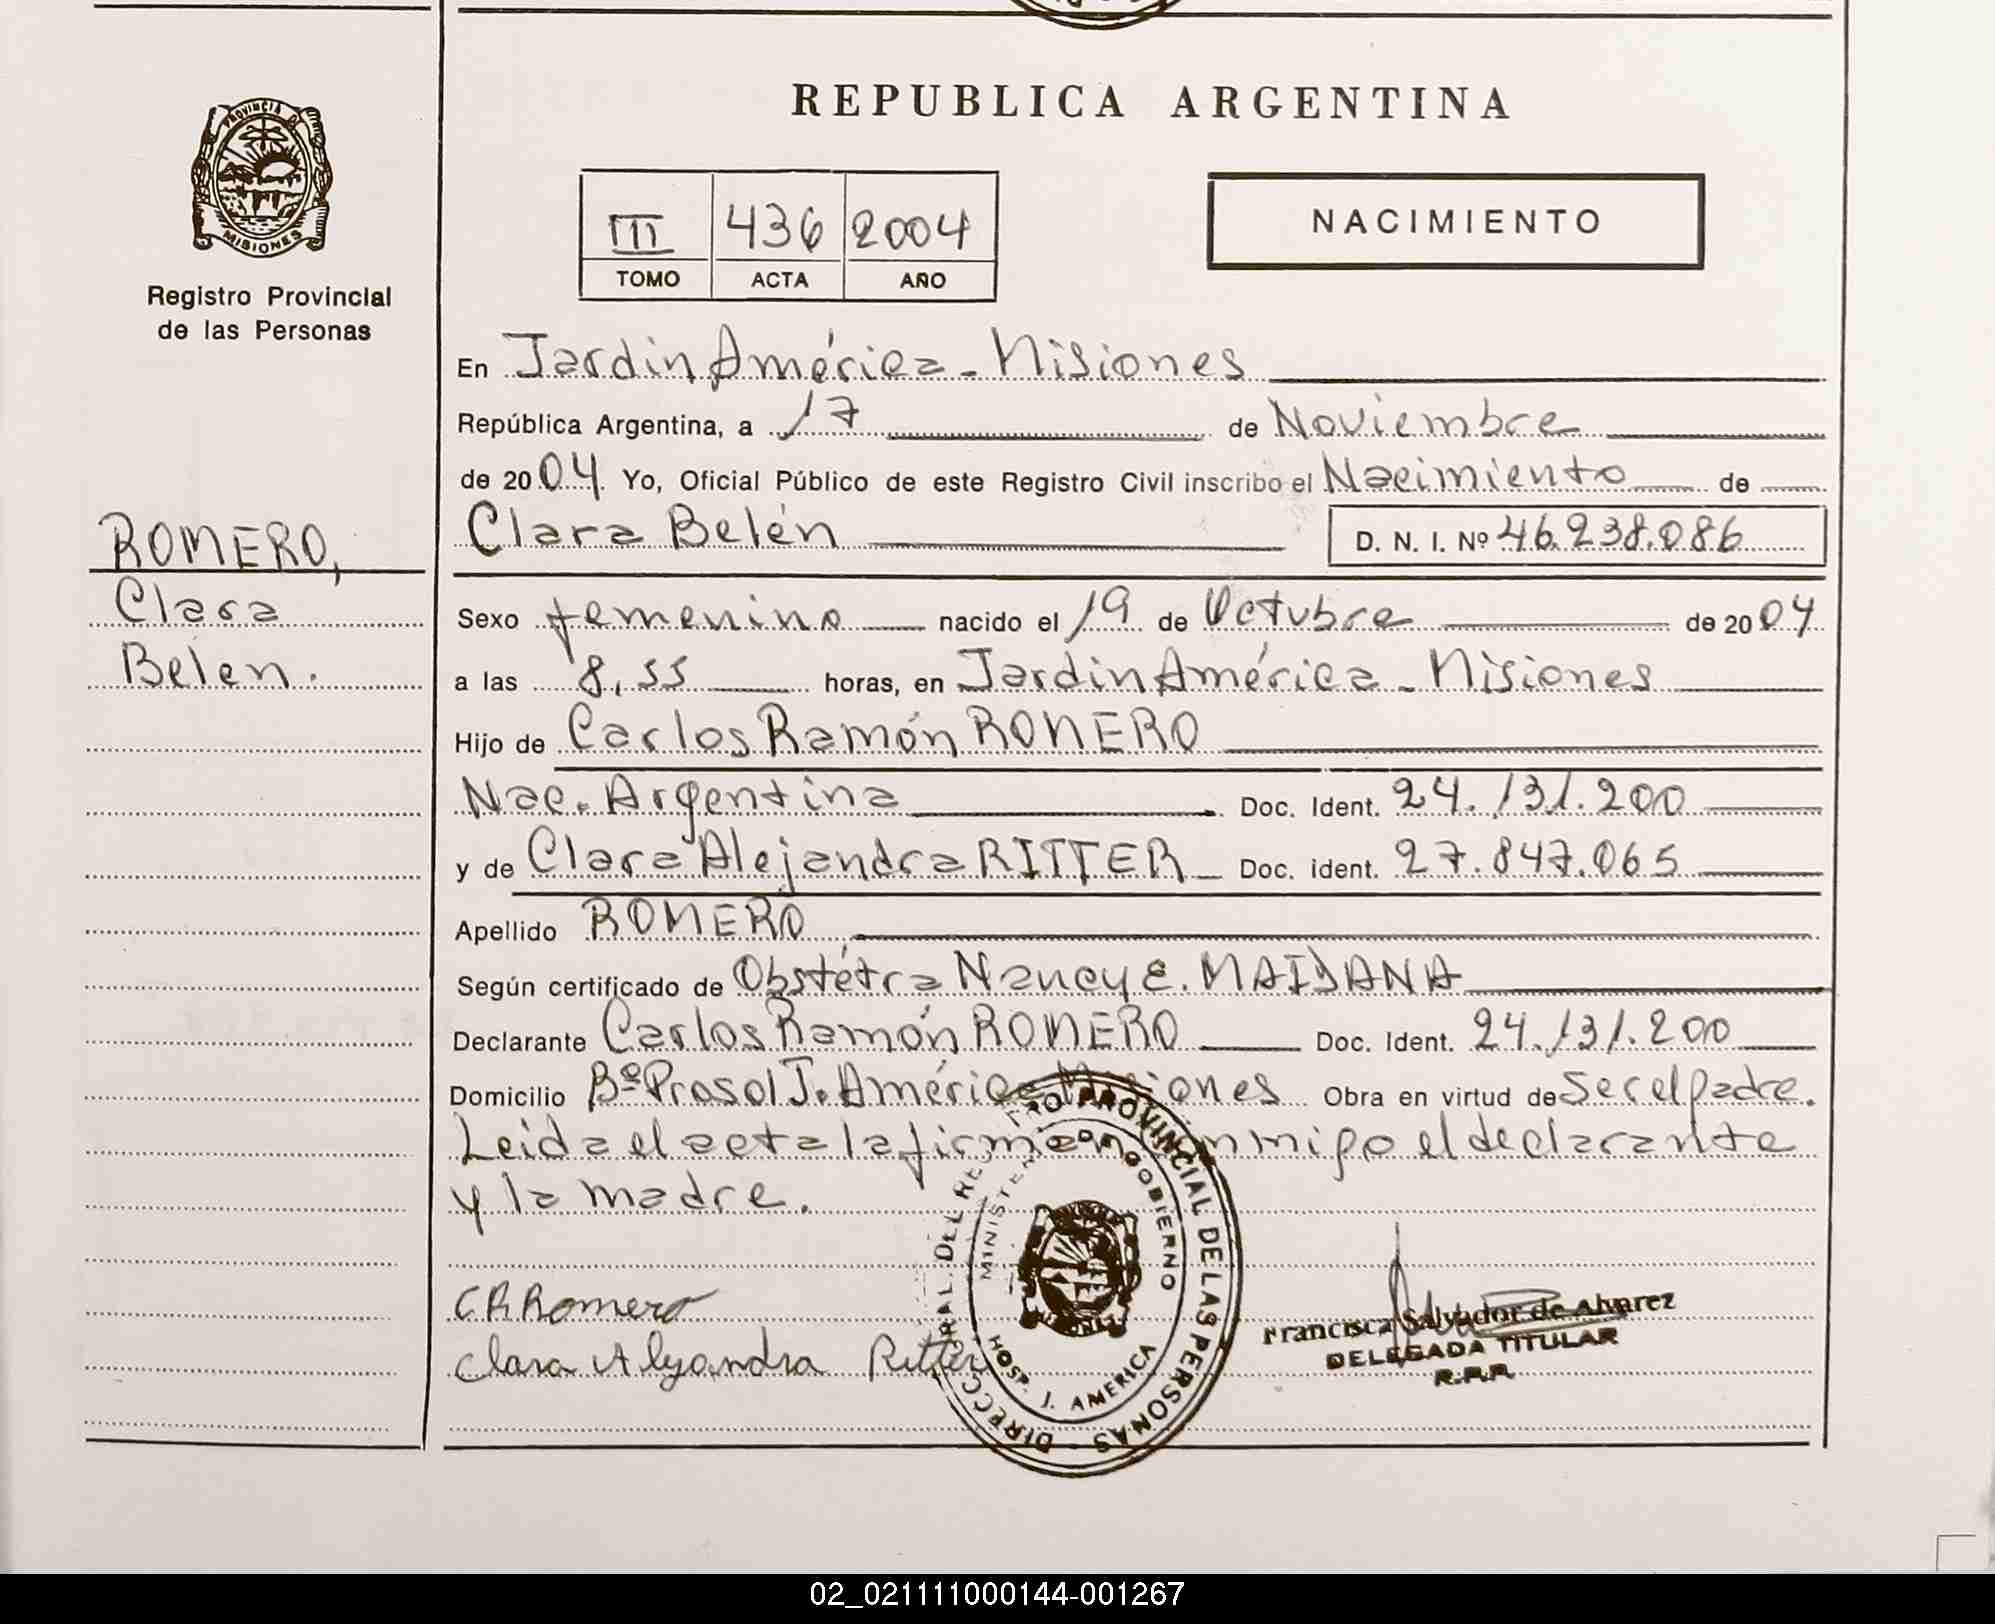 REPUBLICA ARGENTINA
PROVINCIA DE
MISIONES
Registro Provincial
de las Personas
III 436 2004
TOMO ACTA AÑO
NACIMIENTO
En Jardin América - Misiones
República Argentina, a 17 de Noviembre
de 2004 Yo, Oficial Público de este Registro Civil inscribo el Nacimiento de
Clara Belén D. N. I. Nº 46.238.086
ROMERO,
Clara
Belen.
Sexo femenino nacido el 19 de Octubre de 2004
a las 8,55 horas, en Jardin América - Misiones
Hijo de Carlos Ramón ROMERO
Nac. Argentina Doc. Ident. 24.131.200
y de Clara Alejandra RITTER Doc. Ident. 27.847.065
Apellido ROMERO
Según certificado de Obstétra Nancy E. MAIDANA
Declarante Carlos Ramón ROMERO Doc. Ident. 24.131.200
Domicilio Bº Prosol J. América Misiones Obra en virtud de ser el padre.
Leida el acta la firman conmigo el declarante
y la madre.
C.R Romero
Clara Alejandra Ritter
DIRECC GRAL. DEL REGISTRO PROVINCIAL DE LAS PERSONAS
MINISTERIO DE GOBIERNO
HOSP. J. AMERICA
Francisca Salvador de Alvarez
DELEGADA TITULAR
R.P.P.
02_021111000144-001267